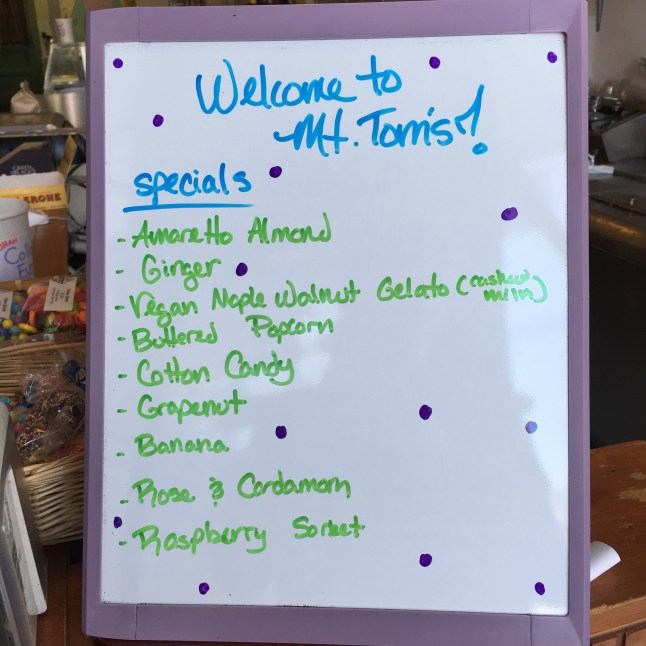 Welcome to
Mt. Tom's!
specials
- Amaretto Almond
- Ginger
- Vegan Maple Walnut Gelato (cashew milk)
- Buttered Popcorn
- Cotton Candy
- Grapenut
- Banana
- Rose & Cardamom
- Raspberry Sorbet
RONE